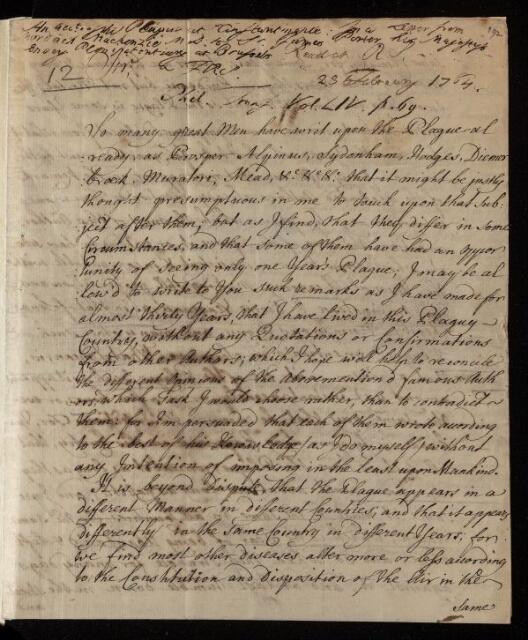 An Account of the Plague at Constantinople: In a Letter from
Mackenzie M.D. to Sir James Porter his Majesty's
Envoy Plenipotentiary at Brussels Read at R.
12
23 February 1764.
Phil. Trans. Vol. LIV. p. 69.
So many great Men have writ upon the Plague al
ready, as Prosper Alpinus, Sydenham, Hodges, Diemer
brock, Muratori, Mead, &c. &c. &c. that it might be justly
thought presumptuous in me to touch upon that Sub
ject after them; but as I find, that they differ in some
Circumstances, and that some of them have had an oppor
tunity of seeing only one Year's Plague; I may be al
low'd to write to You such remarks as I have made for
almost thirty Years, that I have lived in this Plaguy
Country, without any Quotations or Confirmations
from other Authors; which I hope will help to reconcile
the different Opinions of the abovemention'd famous Auth
ors; which Task I would choose rather, than to contradict
them: for I'm persuaded that each of them wrote acording
to the best of his Knowledge (as I do myself) without
any Intention of imposing in the least upon Mankind.
It is beyond Dispute, that the Plague appears in a
different Manner in different Countries, and that it appears
differently in the same Country in different Years; for
we find most other diseases alter more or less according
to the Constitution and Disposition of the Air in the
same